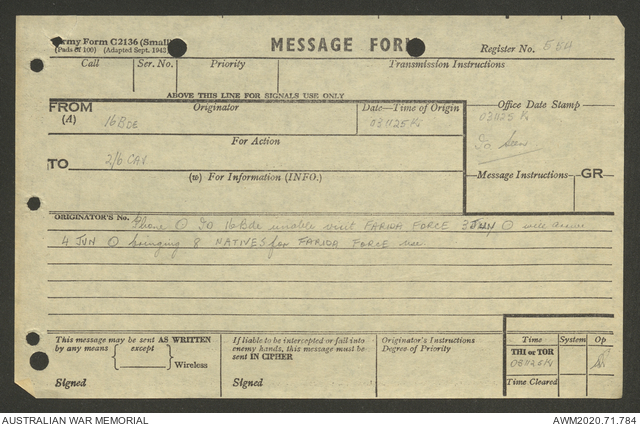 Army Form C2136 (Small)
(Pads of 100) (Adapted Sept. 1942)
MESSAGE FORM
Register No.
Call Ser. No. Priority Transmission Instructions
ABOVE THIS LINE FOR SIGNALS USE ONLY
FROM Originator Date—Time of Origin Office Date Stamp
(A) 16 Bde
For Action
TO 2/6 CAV
(w) For Information (INFO.) Message Instructions GR
ORIGINATOR'S No. Phone O 16 Bde unable visit FARIDA FORCE 3 JUN O will arrive
4 JUN O bringing 8 NATIVES for FARIDA FORCE use.
This message may be sent AS WRITTEN
by any means except
Wireless
Signed
If liable to be intercepted or fall into
enemy hands, this message must be
sent IN CIPHER
Signed
Originator's Instructions
Degree of Priority
Time System Op
THI or TOR
Time Cleared
AUSTRALIAN WAR MEMORIAL AWM2020.71.784